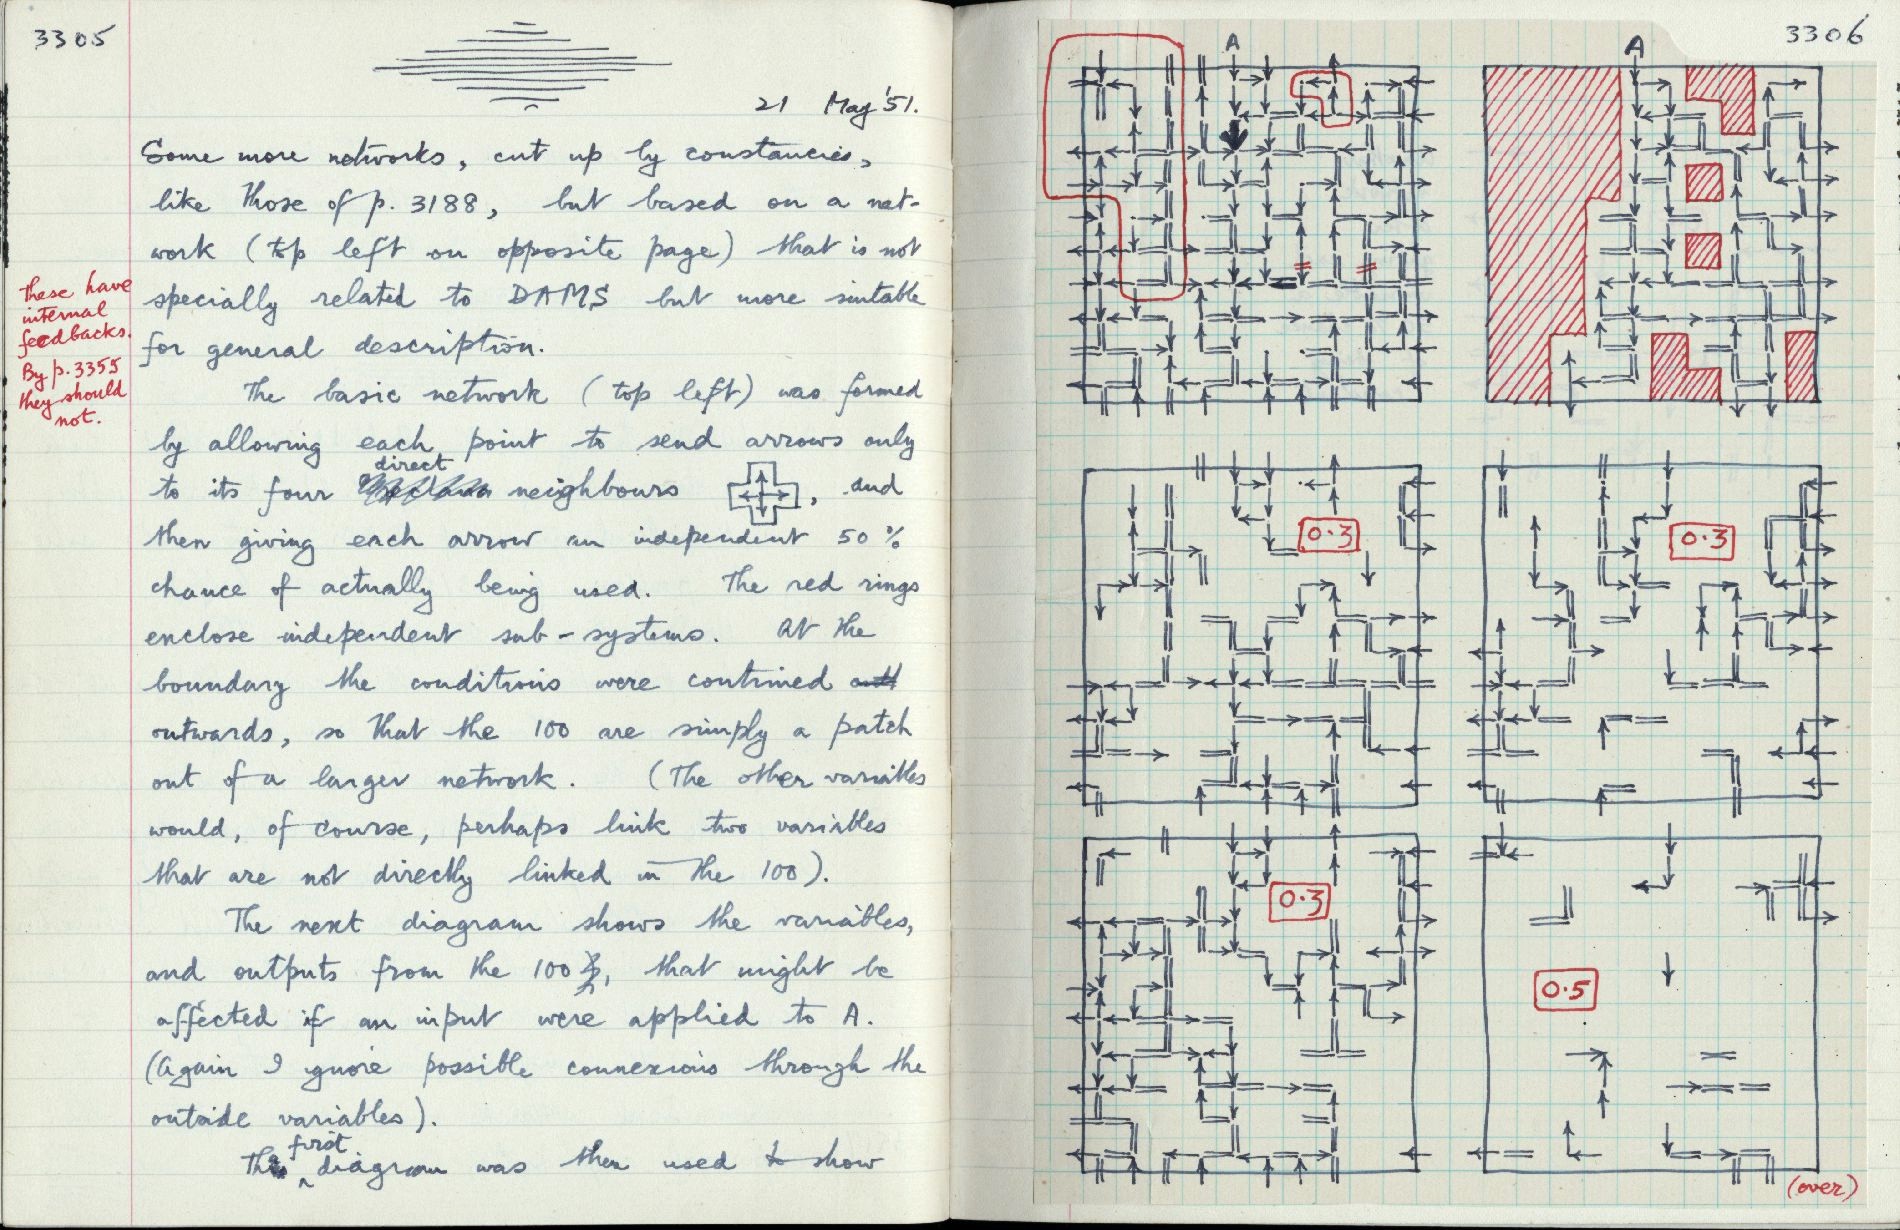 3305
21 May '51.
Some more networks, cut up by constancies,
like those of p. 3188, but based on a net-
work (top left on opposite page) that is not
specially related to DAMS but more suitable
for general description.
These have
internal
feedbacks.
By p. 3355
they should
not.
The basic network (top left) was formed
by allowing each point to send arrows only
direct
to its four neighbours , and
then giving each arrow an independent 50%
chance of actually being used. The red rings
enclose independent sub-systems. At the
boundary the conditions were continued
outwards, so that the 100 are simply a patch
out of a larger network. (The other variables
would, of course, perhaps link two variables
that are not directly linked in the 100).
The next diagram shows the variables,
and outputs from the 100, that might be
affected if an input were applied to A.
(Again I ignore possible connexions through the
outside variables).
first
The diagram was then used to show
3306
A
A
0.3
0.3
0.3
0.5
(over)